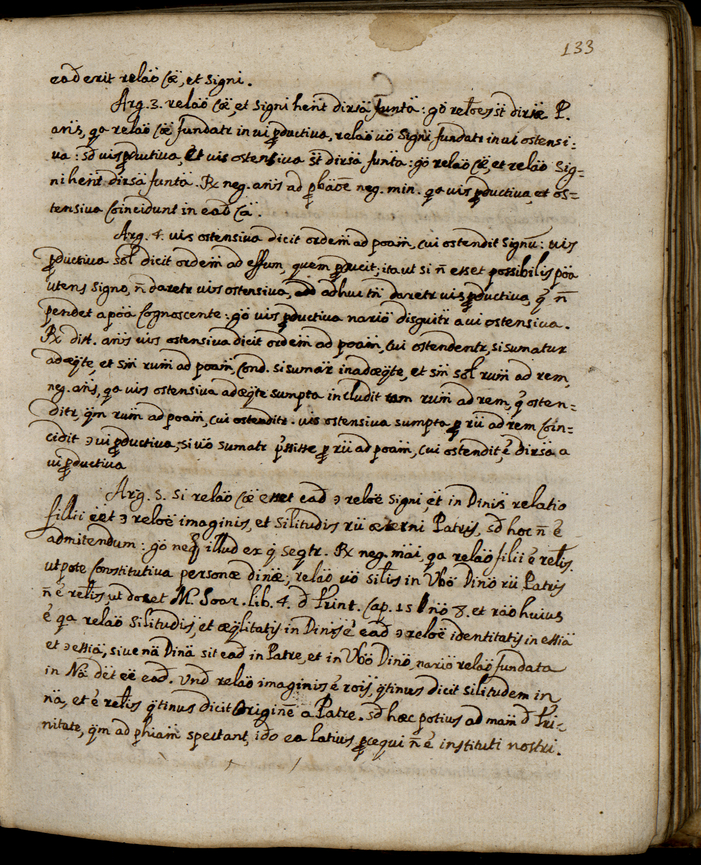 133
ead̄ erit relaõ Cæ̈, et signi.
Arg. 3. relaõ Cæ̈, et signi hẽnt diŕsa funtä: gõ reloẽs st̃ diŕsæ P.
añs, qa relaõ Cæ̈ fundatr in vi pductiva, relaõ vö Signi fundatr in vi ostensi:
va: sd̄ vis pductiva, et vis ostensiva st̃ diŕsa funtä: gõ relaõ Cæ̈, et relaõ Sig=
ni hẽnt diŕsa funtä. Rx neg. añs ad pbaõe neg. min. qa vis pductiva, et os=
tensiva Coincidunt in ead̄ Cä.
Arg. 4. vis ostensiva dicit ordem̃ ad poam̃, cui ostendit Signũ: vis
pductiva sol̄ dicit ordem̃ ad effum̃, quem pducit; ita ut si ñ esset possibilis poä
utens signo, ñ daretr vis ostensiva, adhuc tñ daretr vis pductiva, q̃ ñ
pendet a poä Cognoscente: gõ vis pductiva nariõ disguitr a vi ostensiva.
Rx dist. añs vis ostensiva dicit ordem̃ ad poam̃, cui ostendentr, si sumatur
adæq̃te, et sm̃ rum̃ ad poam̃, Cond. si sumar̃ inadæq̃te, et sm̃ sol̄ rum̃ ad rem,
neg. añs, qa vis ostensiva adæq̃te sumpta includit tam rum̃ ad rem, q̃ osten=
ditr, q̃m rum̃ ad poam̃, cui ostenditr. vis ostensiva sumpta p rũ ad rem Coin=
cidit ɔ vi pductiva; si vö sumatr p̃ssisse p rũ ad poam̃, cui ostendit, ẽ diŕsa a
vi pductiva
Arg. 5. Si relaõ Cæ̈ esset ead̄ ɔ reloẽ signi, et in Dinis̈ relatio
fillii eẽt ɔ reloẽ imaginis, et Silitudis rũ æterni Patris, sd̄ hoc ñ ẽ
admitendum: gõ neq̃ illud ex q̃ seqtr. Rx neg. mäi, qa relaõ filii ẽ rel̃is,
ut pote Constitutiva personæ dinæ̈; relaõ vö silis̈ in Vbö Dinö rũ Patris
ñ ẽ rel̃is ut docet M. Soar. lib. 4. d̄ Trint. Cap. 15 nõ 8. et raõ huius
ẽ qa relaõ Silitudis̈, et æq̃litatis in Dinis̈ ẽ ead̄ ɔ reloẽ identitatis in essiä
et ɔ essiä, sive nä Dinä sit ead̄ in Patre, et in Vbö Dinö, nariö relaõ fundata
in Nä dẽt eẽ ead̄. Und̄ relaõ imaginis ẽ rõis, q̃tinus dicit silitudem in
nä, et ẽ rel̃is q̃tinus dicit Originẽ a Patre. sd̄ hæc potius ad mam̃ d̄ Tri=
nitate, q̃m ad phiam̃ spectant, idõ ea latius pcequi ñ ẽ instituti nostri.